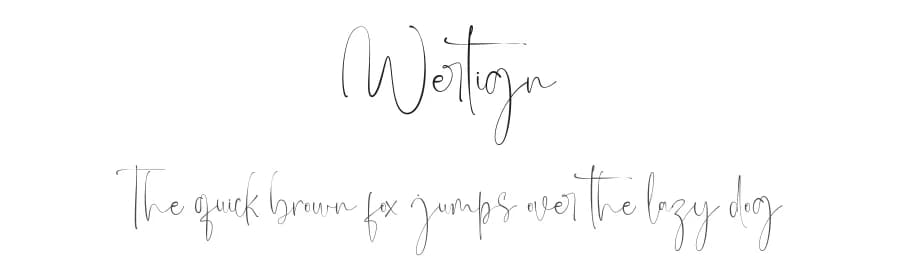 Wertign
The quick brown fox jumps over the lazy dog